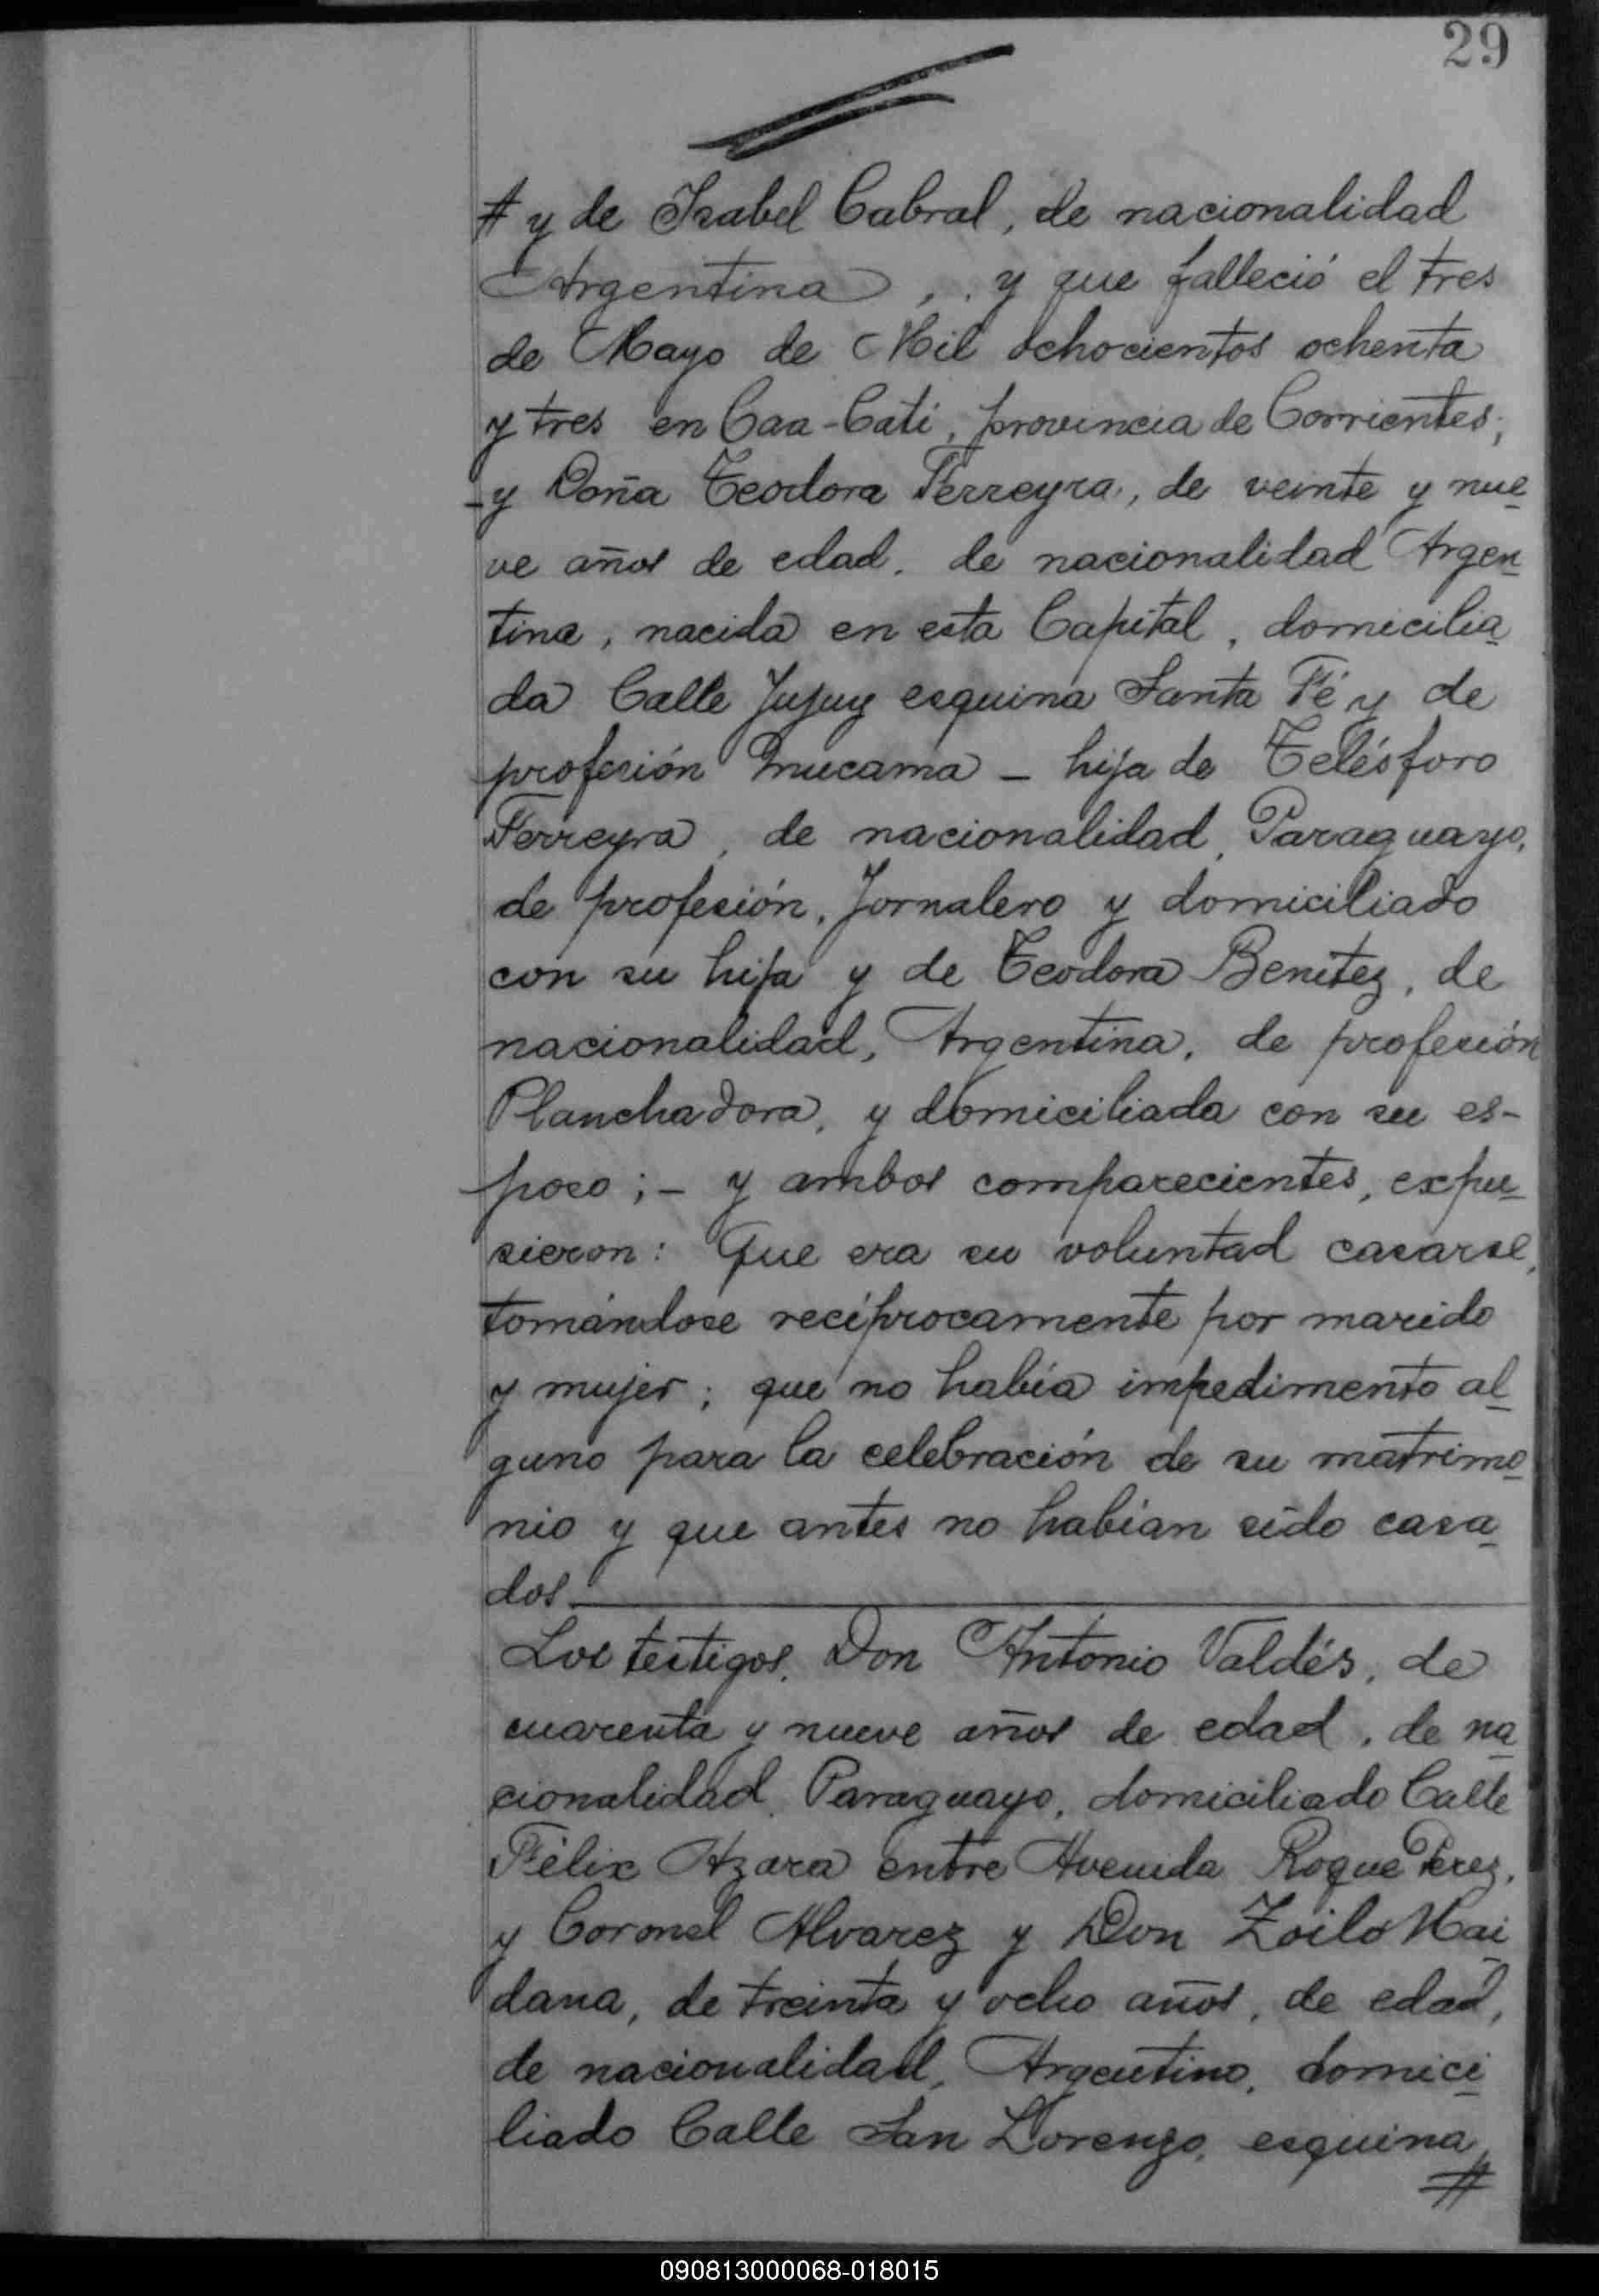 29
# y de Isabel Cabral, de nacionalidad
Argentina, . y que falleció el tres
de Mayo de Mil ochocientos ochenta
y tres en Caa-Cati, provincia de Corrientes;
-y Doña Teodora Ferreyra, de veinte y nue
ve años de edad. de nacionalidad Argen
tina, nacida en esta Capital, domicilia
da Calle Jujuy esquina Santa Fé y de
profesión Mucama - hija de Telésforo
Ferreyra, de nacionalidad, Paraguayo,
de profesión, Jornalero y domiciliado
con su hija y de Teodora Benitez, de
nacionalidad, Argentina, de profesión
Planchadora, y domiciliada con su es-
poso ; - y ambos comparecientes, expu
sieron: Que era su voluntad casarse,
tomándose recíprocamente por marido
y mujer; que no había impedimento al
guno para la celebración de su matrimo
nio y que antes no habían sido casa
dos.
Los testigos, Don Antonio Valdés, de
cuarenta y nueve años de edad, de na
cionalidad, Paraguayo, domiciliado Calle
Félix Azara entre Avenida Roque Perez,
y Coronel Alvarez y Don Zoilo Mai
dana, de treinta y ocho años, de edad,
de nacionalidad, Argentino, domici
liado Calle San Lorenzo, esquina
#
090813000068-018015